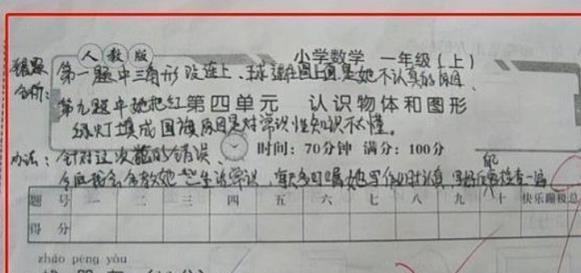 人教版
小学数学 一年级(上)
错题分析:
第一题中三角形没连上、球连在圆上面,是她不认真的原因。
第九题中她把红
第四单元 认识物体和图形
绿灯填成国旗原因是对常识性知识不太懂。
时间:70分钟 满分:100分
办法:针对这次的错误、
今后我会多教她一些生活常识,每天多叮嘱她写作业时认真,写好后能检查一遍
题号 一 二 三 四 五 六 七 八 九 十 快乐蹦极 总
得分
zhǎo péng yǒu